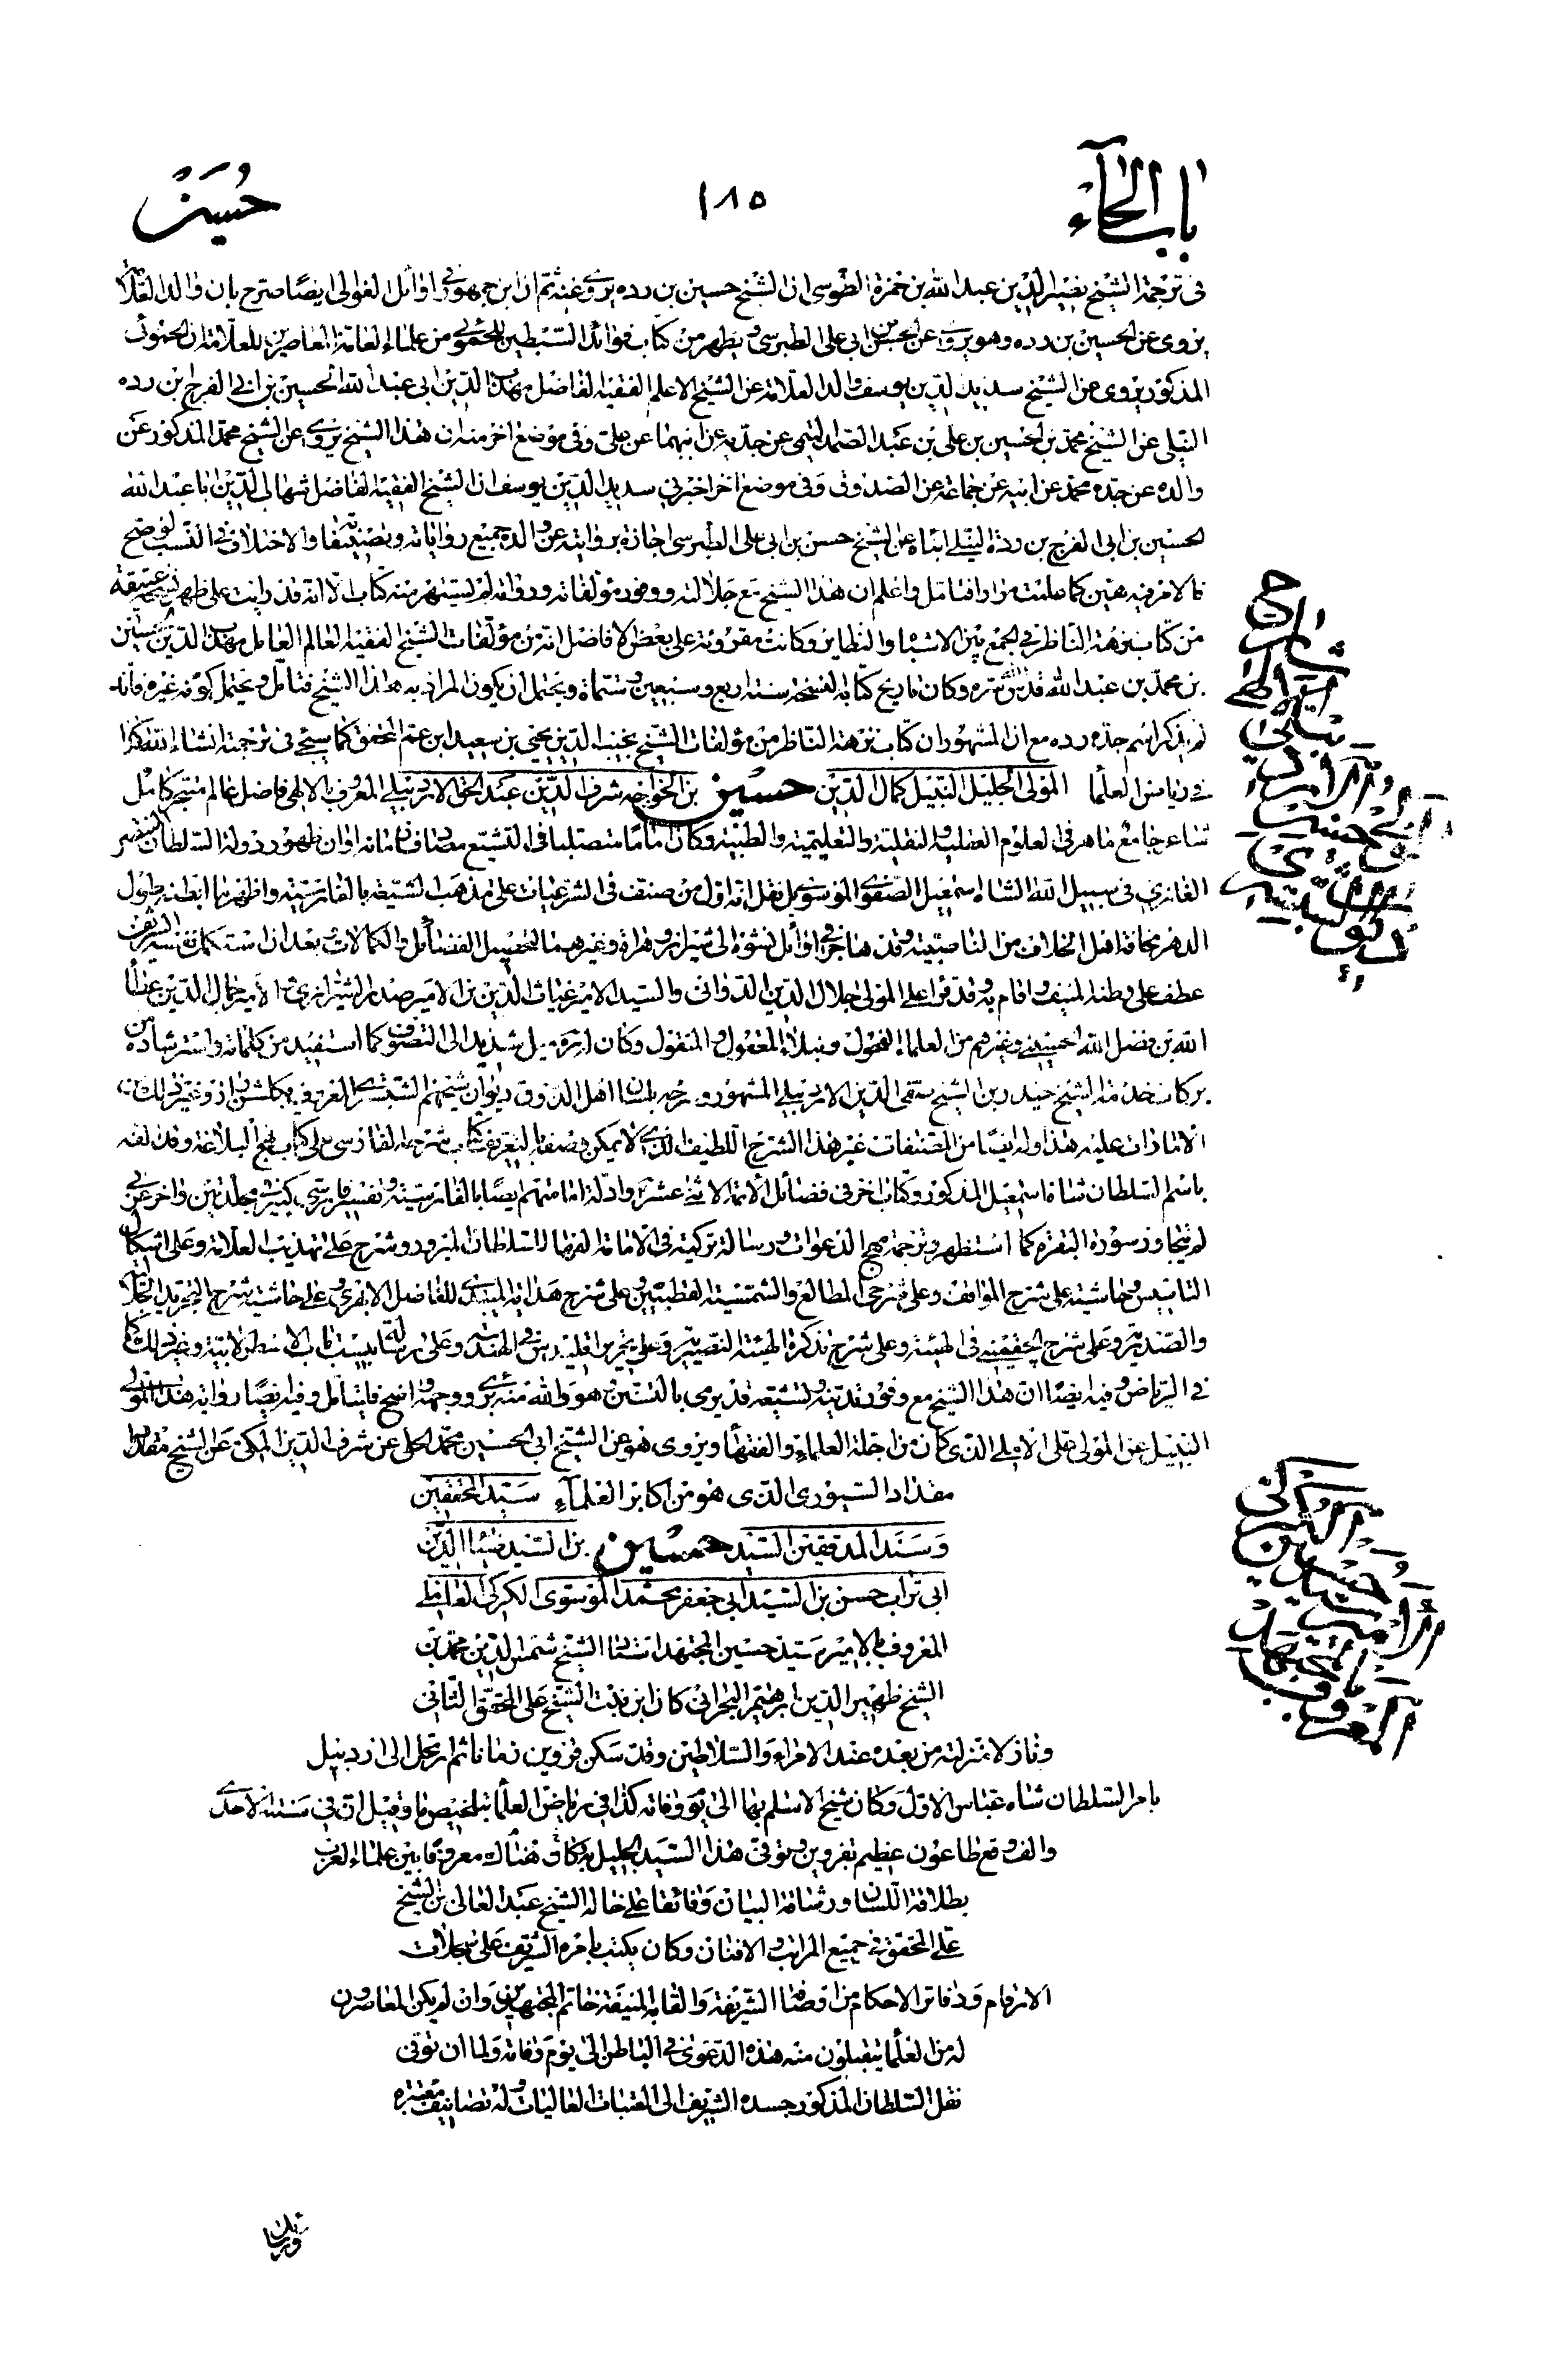 باب الحاء
١٨٥
حسين
في ترجمة الشيخ نصير الدين عبد الله بن حمزة الطوسي ان الشيخ حسين بن رده يروي عنه ثم ان ابن جمهور في اوائل الغوالي ايضا صرح بان والد العلامة
يروي عن الحسين بن رده وهو يروي عن الحسن بن ابي علي الطبرسي ويظهر من كتاب فرائد السبطين للحموي من علماء العامة المعاصرين للعلامة ان الحموي
المذكور يروي عن الشيخ سديد الدين يوسف والد العلامة عن الشيخ الاعلم الفقيه الفاضل مهذب الدين ابي عبد الله الحسين بن ابي الفرج ابن رده
النيلي عن الشيخ محمد بن الحسين بن علي بن عبد الصمد التميمي عن جديه عن ابيهما عن علي وفي موضع اخر منه ان هذا الشيخ يروي عن الشيخ محمد المذكور عن
والده عن جده محمد عن ابيه عن جماعة عن الصدوق وفي موضع اخر اخبرني سديد الدين يوسف ان الشيخ الفقيه الفاضل شهاب الدين ابا عبد الله
الحسين بن ابي الفرج بن ردة النيلي انباه عن الشيخ حسن بن ابي علي الطبرسي اجازة بروايته عن والده جميع رواياته وتصنيفه والاختلاف في النسب لو صح
فالامر فيه هين كما علمت مرارا فتامل واعلم ان هذا الشيخ مع جلالته ووفور مؤلفاته ورواته لم يشتهر منه كتاب الا انه قد رايت على ظهر نسخة عتيقة
من كتاب نزهة الناظر في الجمع بين الاشباه والنظاير وكانت مقروئة على بعض الافاضل انه من مؤلفات الشيخ الفقيه العالم العامل مهذب الدين الحسين
بن محمد بن عبد الله قدس الله سره وكان تاريخ كتابة النسخة سنة اربع وسبعين وستماة ويحتمل ان يكون المراد به هذا الشيخ فتامل ويحتمل كونه غيره فانه
لم يذكر اسم جده رده مع ان المشهور ان كتاب نزهة الناظر من مؤلفات الشيخ نجيب الدين يحيى بن سعيد ابن عم المحقق كما سيجئ في ترجمته انشاء الله كذا
في رياض العلما المولى الجليل النبيل كمال الدين حسين بن الخواجه شرف الدين عبد الحق الاردبيلي المعروف بالالهي فاضل عالم متبحر كامل
شاعر جامع ماهر في العلوم العقلية والنقلية والتعليمية والطبية وكان اماما متصلبا في التشيع معاصرا اوان ظهور دولة السلطان
الغازي في سبيل الله الشاه اسمعيل الصفوي الموسوي بل نقل انه اول من صنف في الشرعيات على مذهب الشيعة بالفارسية واظهر ما ابطنه طول
الدهر مخافة اهل الخلاف من الناصبية وقد هاجر في اوائل نشوه الى شيراز وهراة وغيرهما لتحصيل الفضائل والكمالات وبعد ان استكمل نفسه الشريف
عطف على وطنه المنيف واقام به وقد قرا على المولى جلال الدين الدواني والسيد الامير غياث الدين بن الامير صدر الشيرازي والامير جمال الدين عطا
الله بن فضل الله الحسيني وغيرهم من العلماء الفحول ونبلاء المعقول والمنقول وكان له ميل شديد الى التصوف كما استفيد من كلماته واسترشاده من
بركات خدمة الشيخ حيدر بن الشيخ صفي الدين الاردبيلي المشهور وشرحه بلسان اهل الذوق ديوان شيخهم الشبستري المعروف بكلشن راز وغير ذلك من
الامارات عليه هذا وله ايضا من المصنفات غير هذا الشرح اللطيف الذي لا يمكن وصفه بالتعريف كتاب شرحه الفارسي على كتاب نهج البلاغة وقد الفه
باسم السلطان شاه اسمعيل المذكور وكتاب اخر في فضائل الائمة الاثني عشر وادلة امامتهم ايضا بالفارسية وتفسير فارسي كبير في مجلدين واخر عربي
لم يتجاوز سورة البقرة كما استظهر وترجمة مهج الدعوات ورسالة تركية في الامامة الفها للسلطان المبرور وشرح على تهذيب العلامة وعلى اشكال
التاسيس وحاشية على شرح المواقف وعلى شرحي المطالع والشمسية القطبيين وعلى شرح هداية الميبدي للفاضل الابهري وعلى حاشية شرح التجريد الجلالية
والصدرية وعلى شرح الجغميني في الهيئة وعلى شرح تذكرة الهيئة النصيرية وعلى تحرير اقليدس في الهندسة وعلى رسالة بيست باب الاسطرلابية وغير ذلك كما
في الرياض وفيه ايضا ان هذا الشيخ مع وفور تدينه وتشيعه قد يرمى بالتسنن هو والله منه بري ووجهه واضح فليتامل وفيه ايضا رواية هذا المولى
النبيل عن المولى علي الاملي الذي كان من اجلة العلماء والفقهاء ويروي هو عن الشيخ ابي الحسين محمد الحلي عن شرف الدين المكي عن الشيخ مقداد
مقداد السيوري الذي هو من اكابر العلماء سيد المحققين
وسند المدققين السيد حسين بن السيد ضياء الدين
ابي تراب حسن بن السيد ابي جعفر محمد الموسوي الكركي العاملي
المعروف بالامير سيد حسين المجتهد الشيخ شمس الدين محمد بن
الشيخ ظهير الدين ابرهيم البحراني كان ابن بنت الشيخ علي المحقق الثاني
وناز لا منزلته من بعده عند الامراء والسلاطين وقد سكن قزوين زمانا ثم ارتحل الى اردبيل
بامر السلطان شاه عباس الاول وكان شيخ الاسلام بها الى يوم وفاته كذا في رياض العلما بتلخيص ما وقيل ان في سنة الاحدى
والف وقع طاعون عظيم بقزوين وتوفي هذا السيد الجليل بها وكان هناك معروفا بين علماء العرب
بطلاقة اللسان ورشاقة البيان وفائقا على خاله الشيخ عبد العالي بن الشيخ
علي المحقق في جميع المراتب والافنان وكان يكتب بامره الشريف على سجلات
الارقام ودفاتر الاحكام من اوصافه الشريفة والقابه المنيفة خاتم المجتهدين وان لم يكن المعاصرون
له من العلما يتقبلون منه هذه الدعوى في الباطن الى يوم وفاته ولما ان توفي
نقل السلطان المذكور جسده الشريف الى العتبات العاليات وله تصانيف معتبره
الكركي
حسين
المعروف بالمجتهد